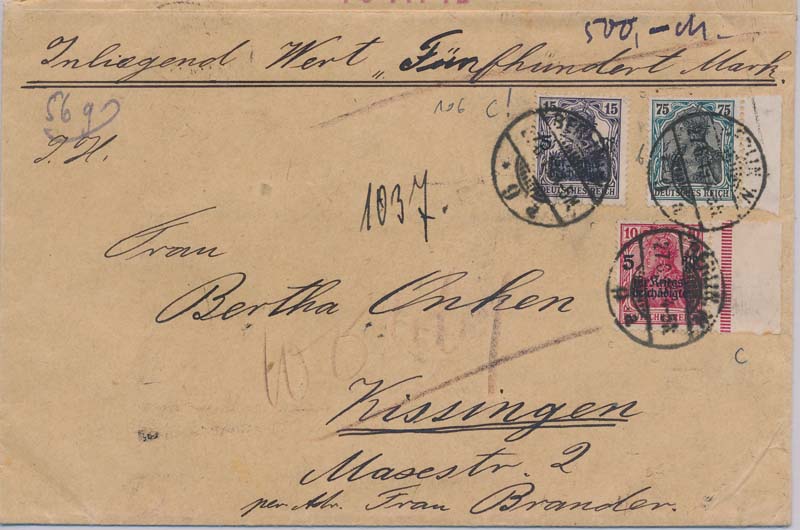 500,-M-
Inliegend Wert „Fünfhundert Mark.
56 g
106 C!
15 15
DEUTSCHES REICH
75 75
DEUTSCHES REICH
BERLIN W
J.H.
1037.
10
5
für Kriegs-
beschädigte
Frau
Bertha Onken
C
Kissingen
Maxestr. 2
per Adr. Frau Brander.